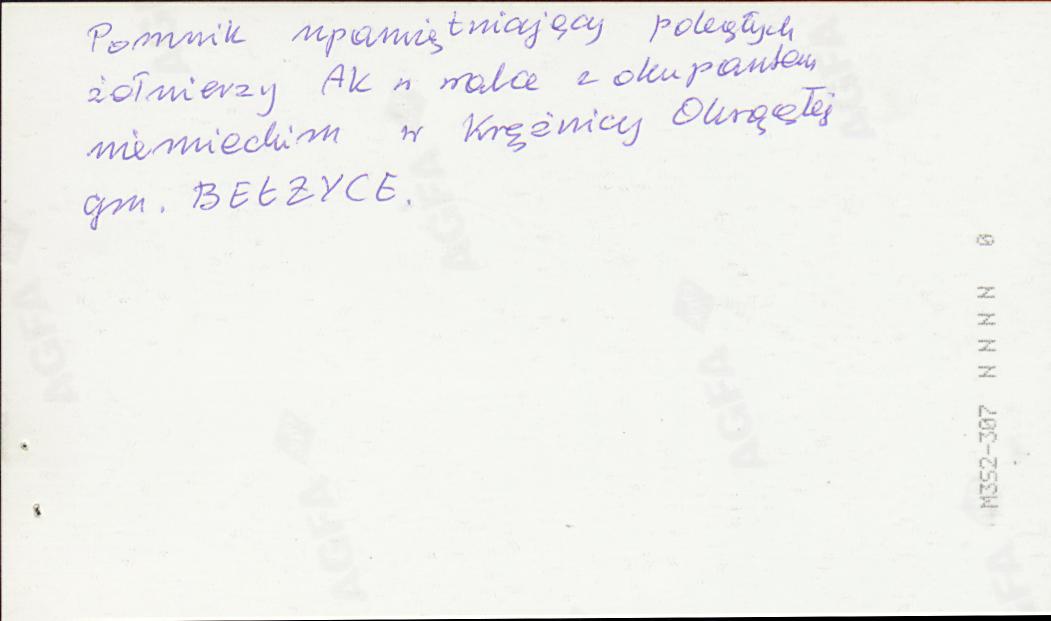 Pomnik upamiętniający poległych
żołnierzy AK w walce z okupantem
niemieckim w Krężnicy Okrągłej
gm. BEŁŻYCE.
M352-307 N N N N 0
AGFA
AGFA
AGFA
AGFA
AGFA
AGFA